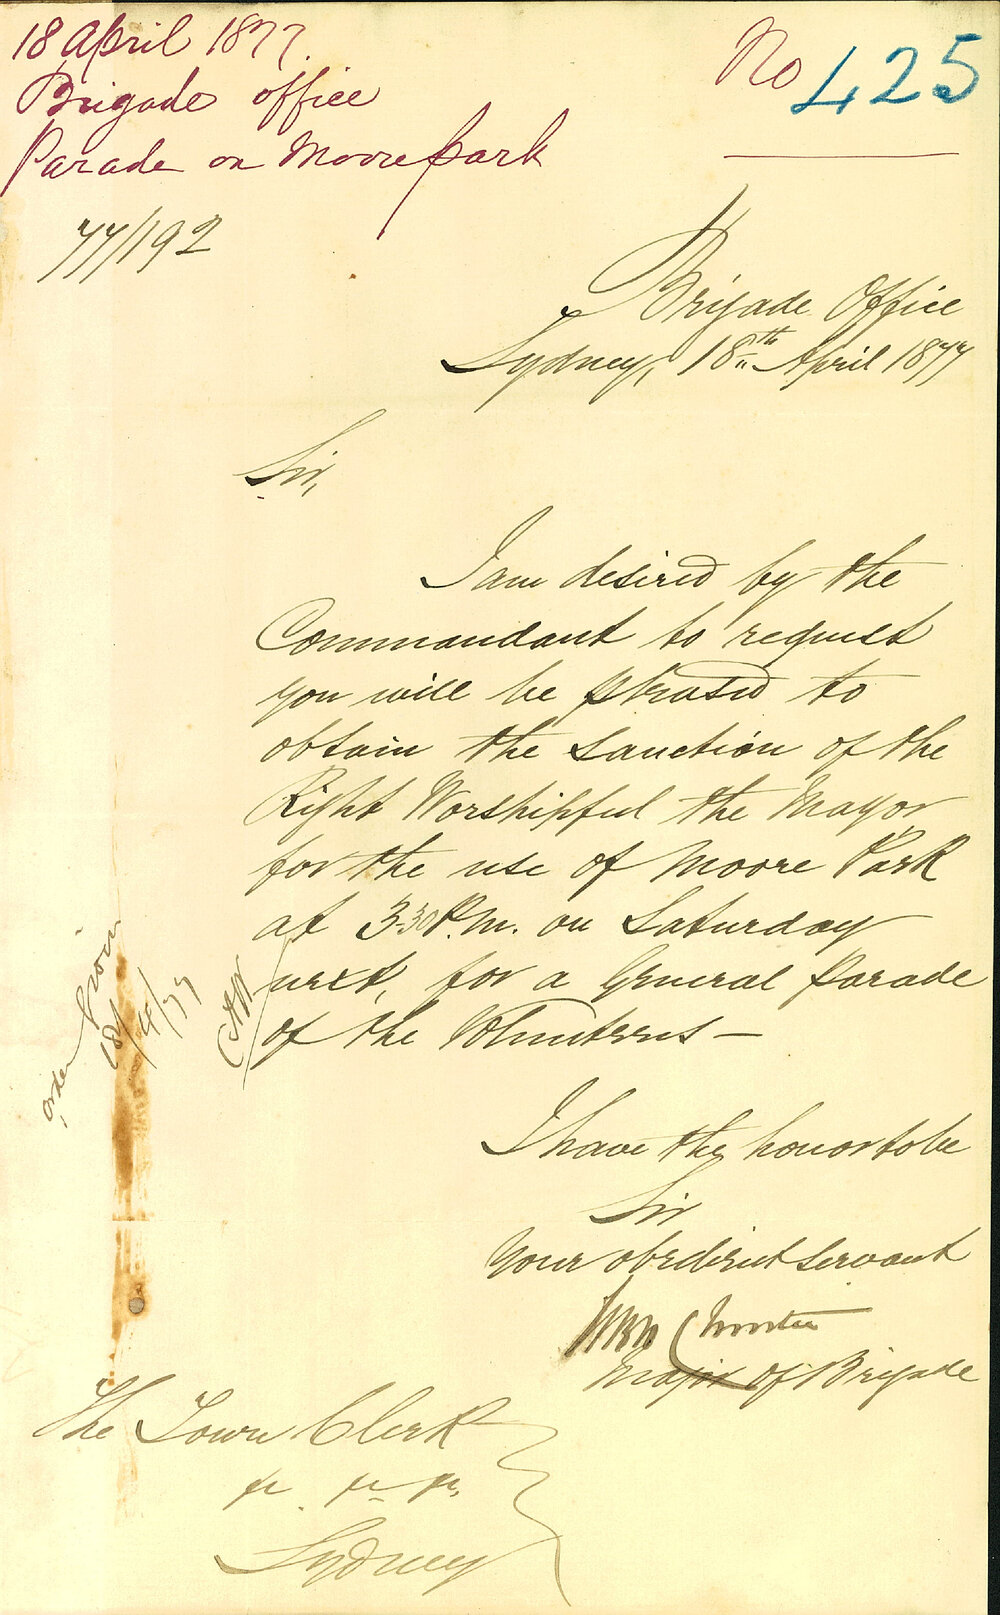 18 April 1877.
Brigade office
Parade on Moore Park
No 425
77/192
Brigade Office
Sydney, 18th April 1877
Sir,
I am desired by the
Commandant to request
you will be pleased to
obtain the sanction of the
Right Worshipful the Mayor
for the use of Moore Park
at 3.30 P.M. on Saturday
next, for a General Parade
of the Volunteers —
order given
18/4/77
I have the honor to be
Sir
Your obedient servant
Major of Brigade
The Town Clerk
Sydney